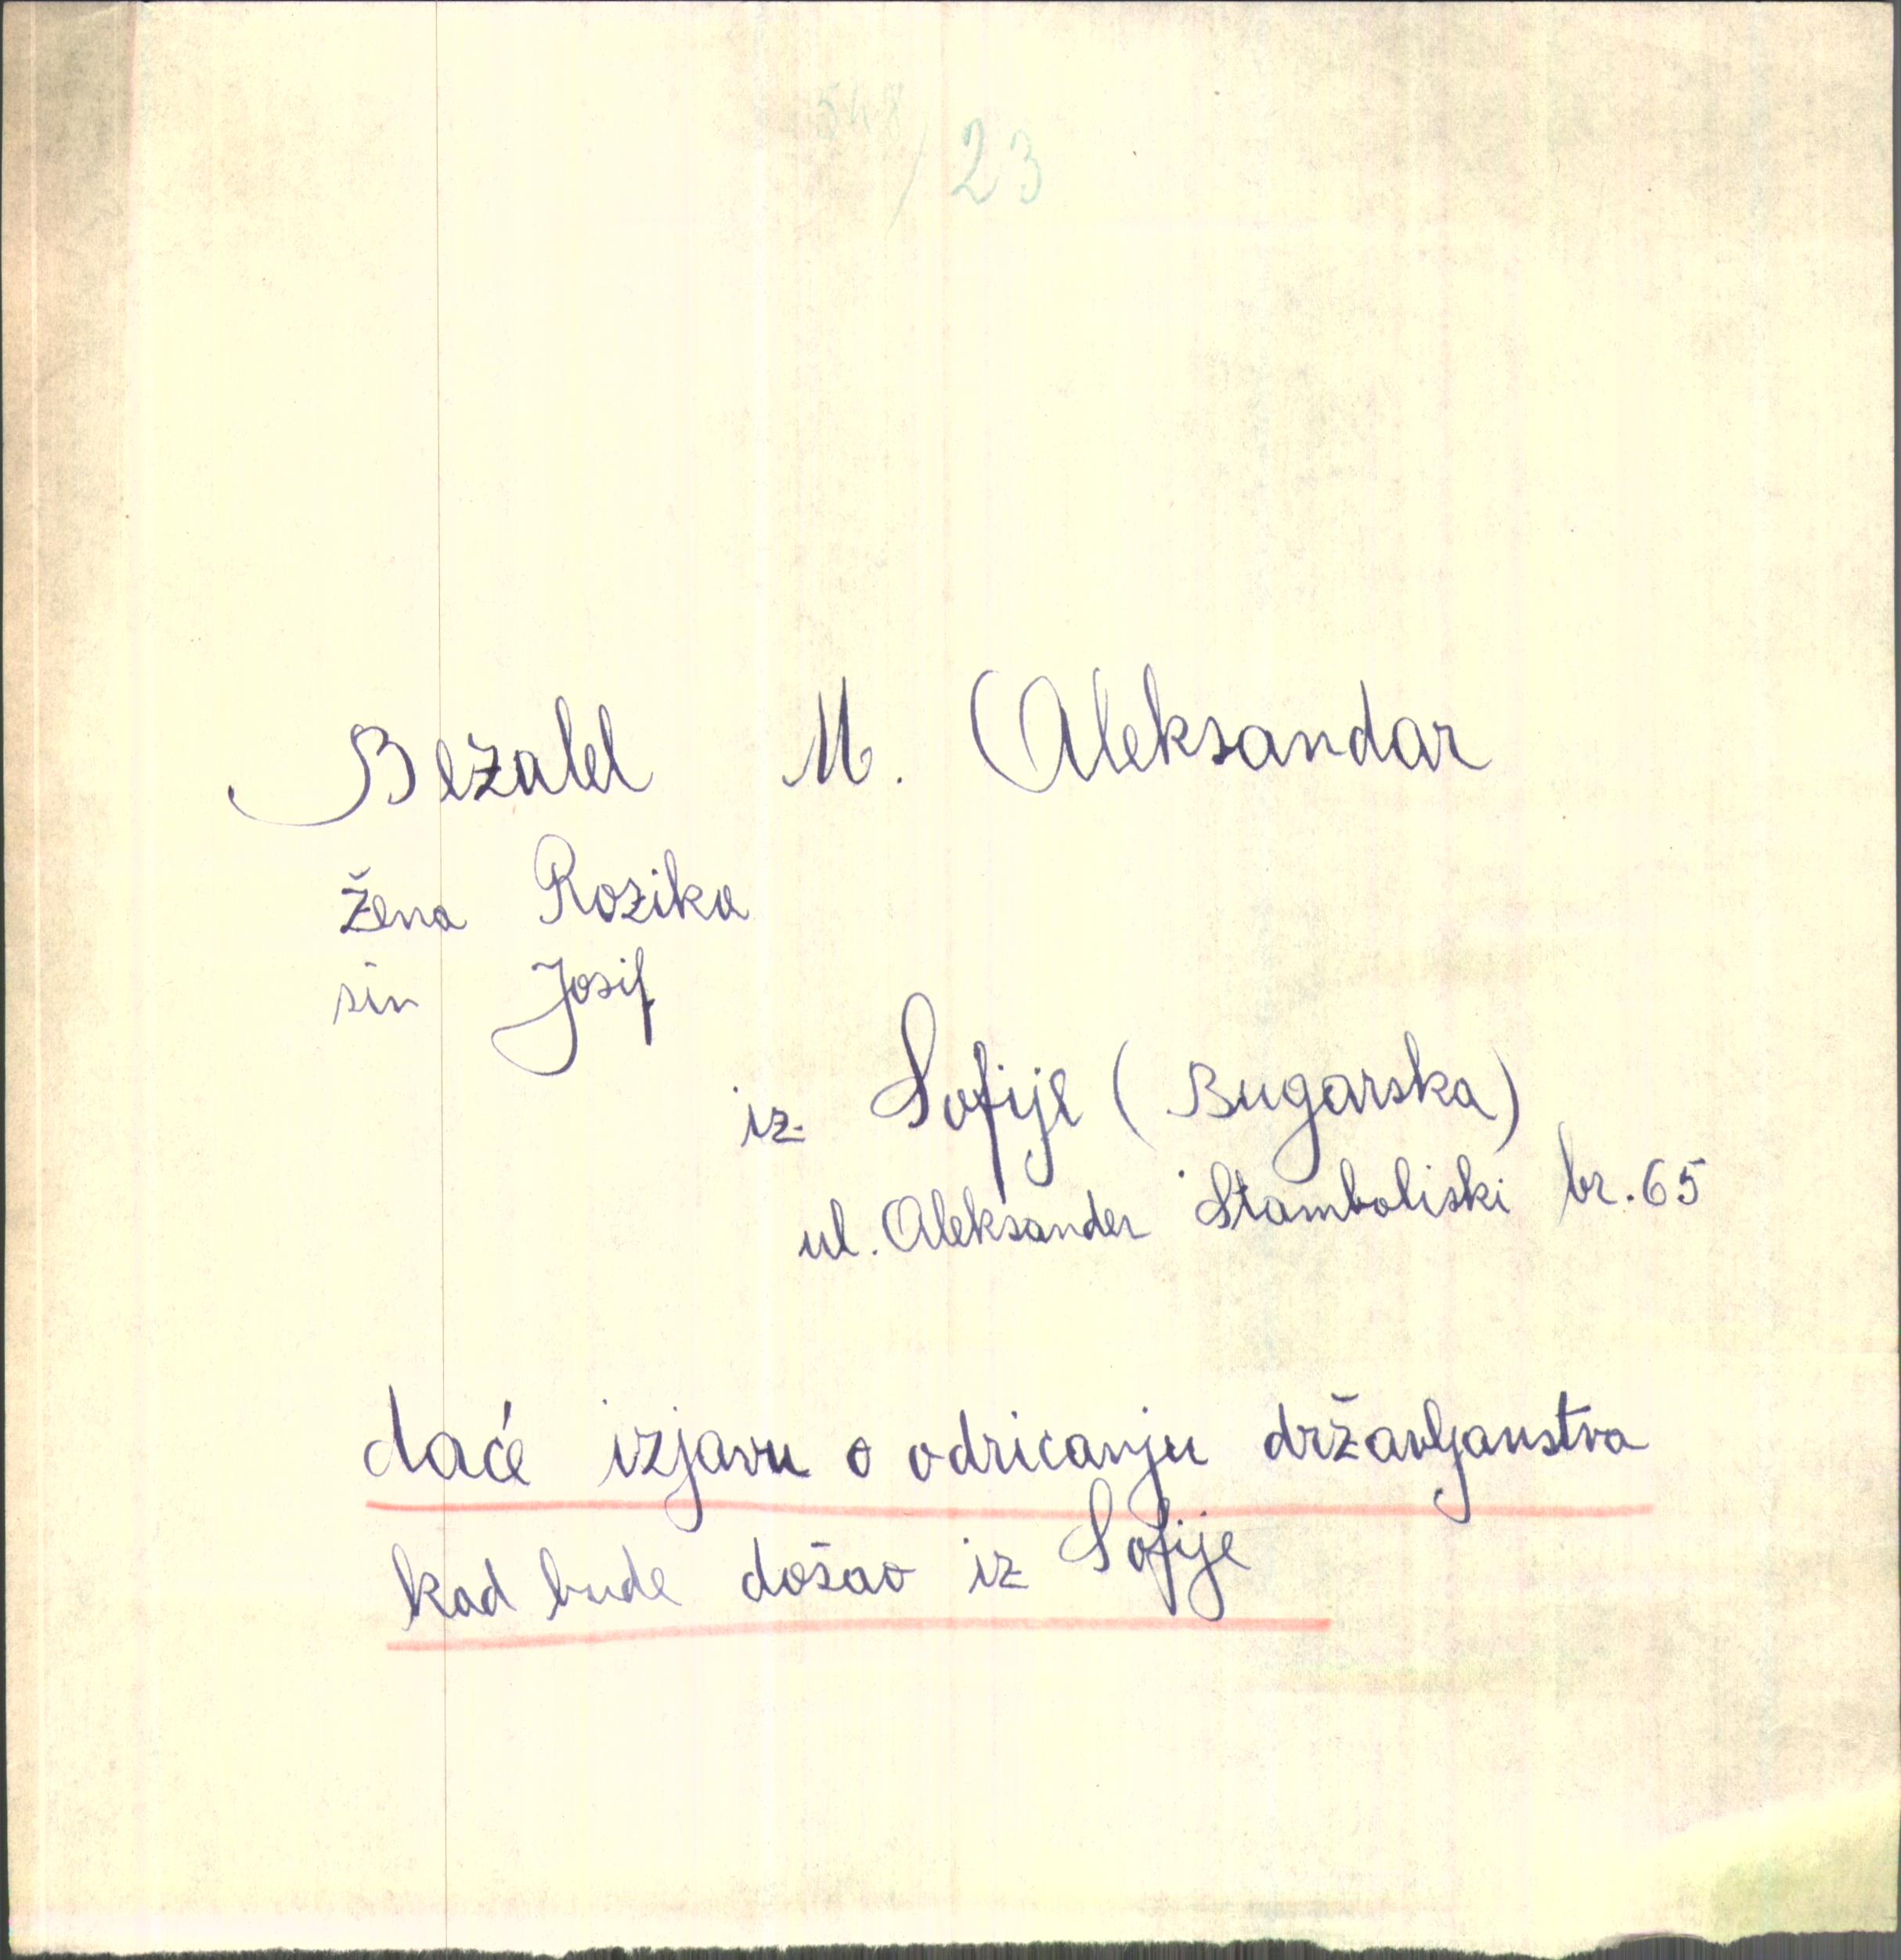 548/23
Bezalel M. Aleksandar
žena Rozika
sin Josif
iz Sofije (Bugarska)
ul. Aleksander Stamboliski br. 65
daće izjavu o odricanju državljanstva
kad bude došao iz Sofije